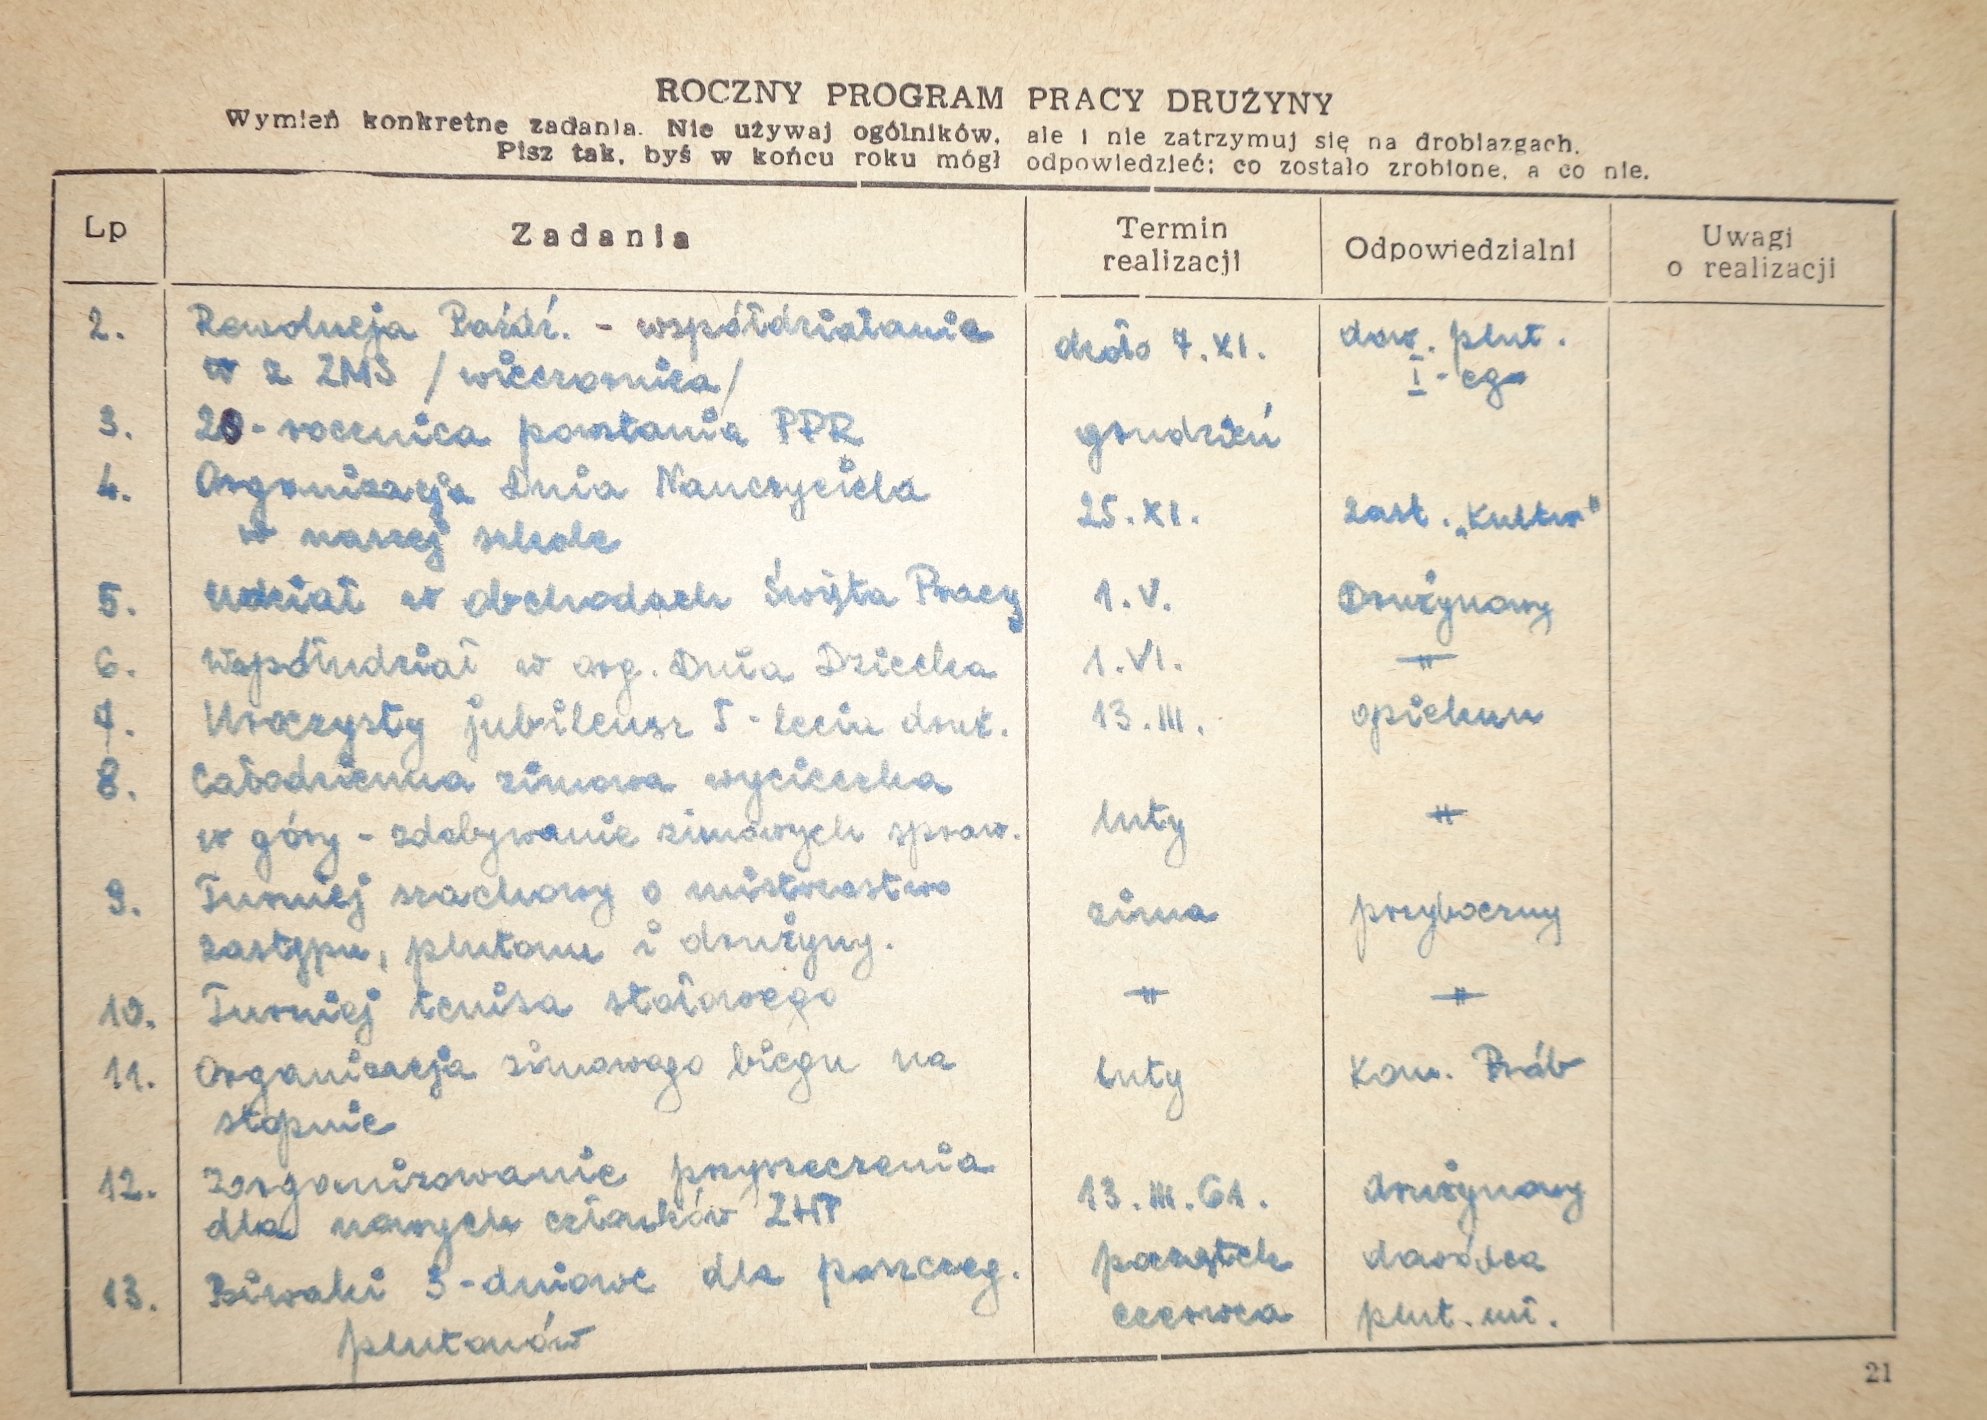 ROCZNY PROGRAM PRACY DRUŻYNY
Wymień konkretne zadania. Nie używaj ogólników, ale i nie zatrzymuj się na drobiazgach.
Pisz tak, byś w końcu roku mógł odpowiedzieć: co zostało zrobione, a co nie.
Lp
Zadania
Termin realizacji
Odpowiedzialni
Uwagi o realizacji
2. Rewolucja Paźdź. - współdziałanie około 7.XI. dow. plut.
w z ZMS /wieczornica/ I-ego
3. 20-rocznica powstania PPR grudzień
4. Organizacja Dnia Nauczyciela 25.XI. zast. „Kultur"
w naszej szkole
5. Udział w obchodach Święta Pracy 1.V. Drużynowy
6. Współudział w org. Dnia Dziecka 1.VI. -"-
7. Uroczysty jubileusz 5-lecia druż. 13.III. opiekun
8. Całodzienna zimowa wycieczka
w góry - zdobywanie zimowych spraw. luty -"-
9. Turniej szachowy o mistrzostwo zima przyboczny
zastępu, plutonu i drużyny.
10. Turniej tenisa stołowego -"- -"-
11. Organizacja zimowego biegu na luty Kom. Prób
stopnie
12. Zorganizowanie przyrzeczenia 13.III.61. drużynowy
dla nowych członków ZHP
13. Biwaki 3-dniowe dla poszczeg. początek dowódca
plutonów czerwca plut. mł.
21